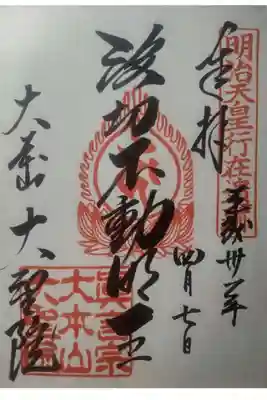 明治天皇行在所
奉拝
平成卅年
四月七日
波切不動明王
大本山 大聖院
真言宗
大本山